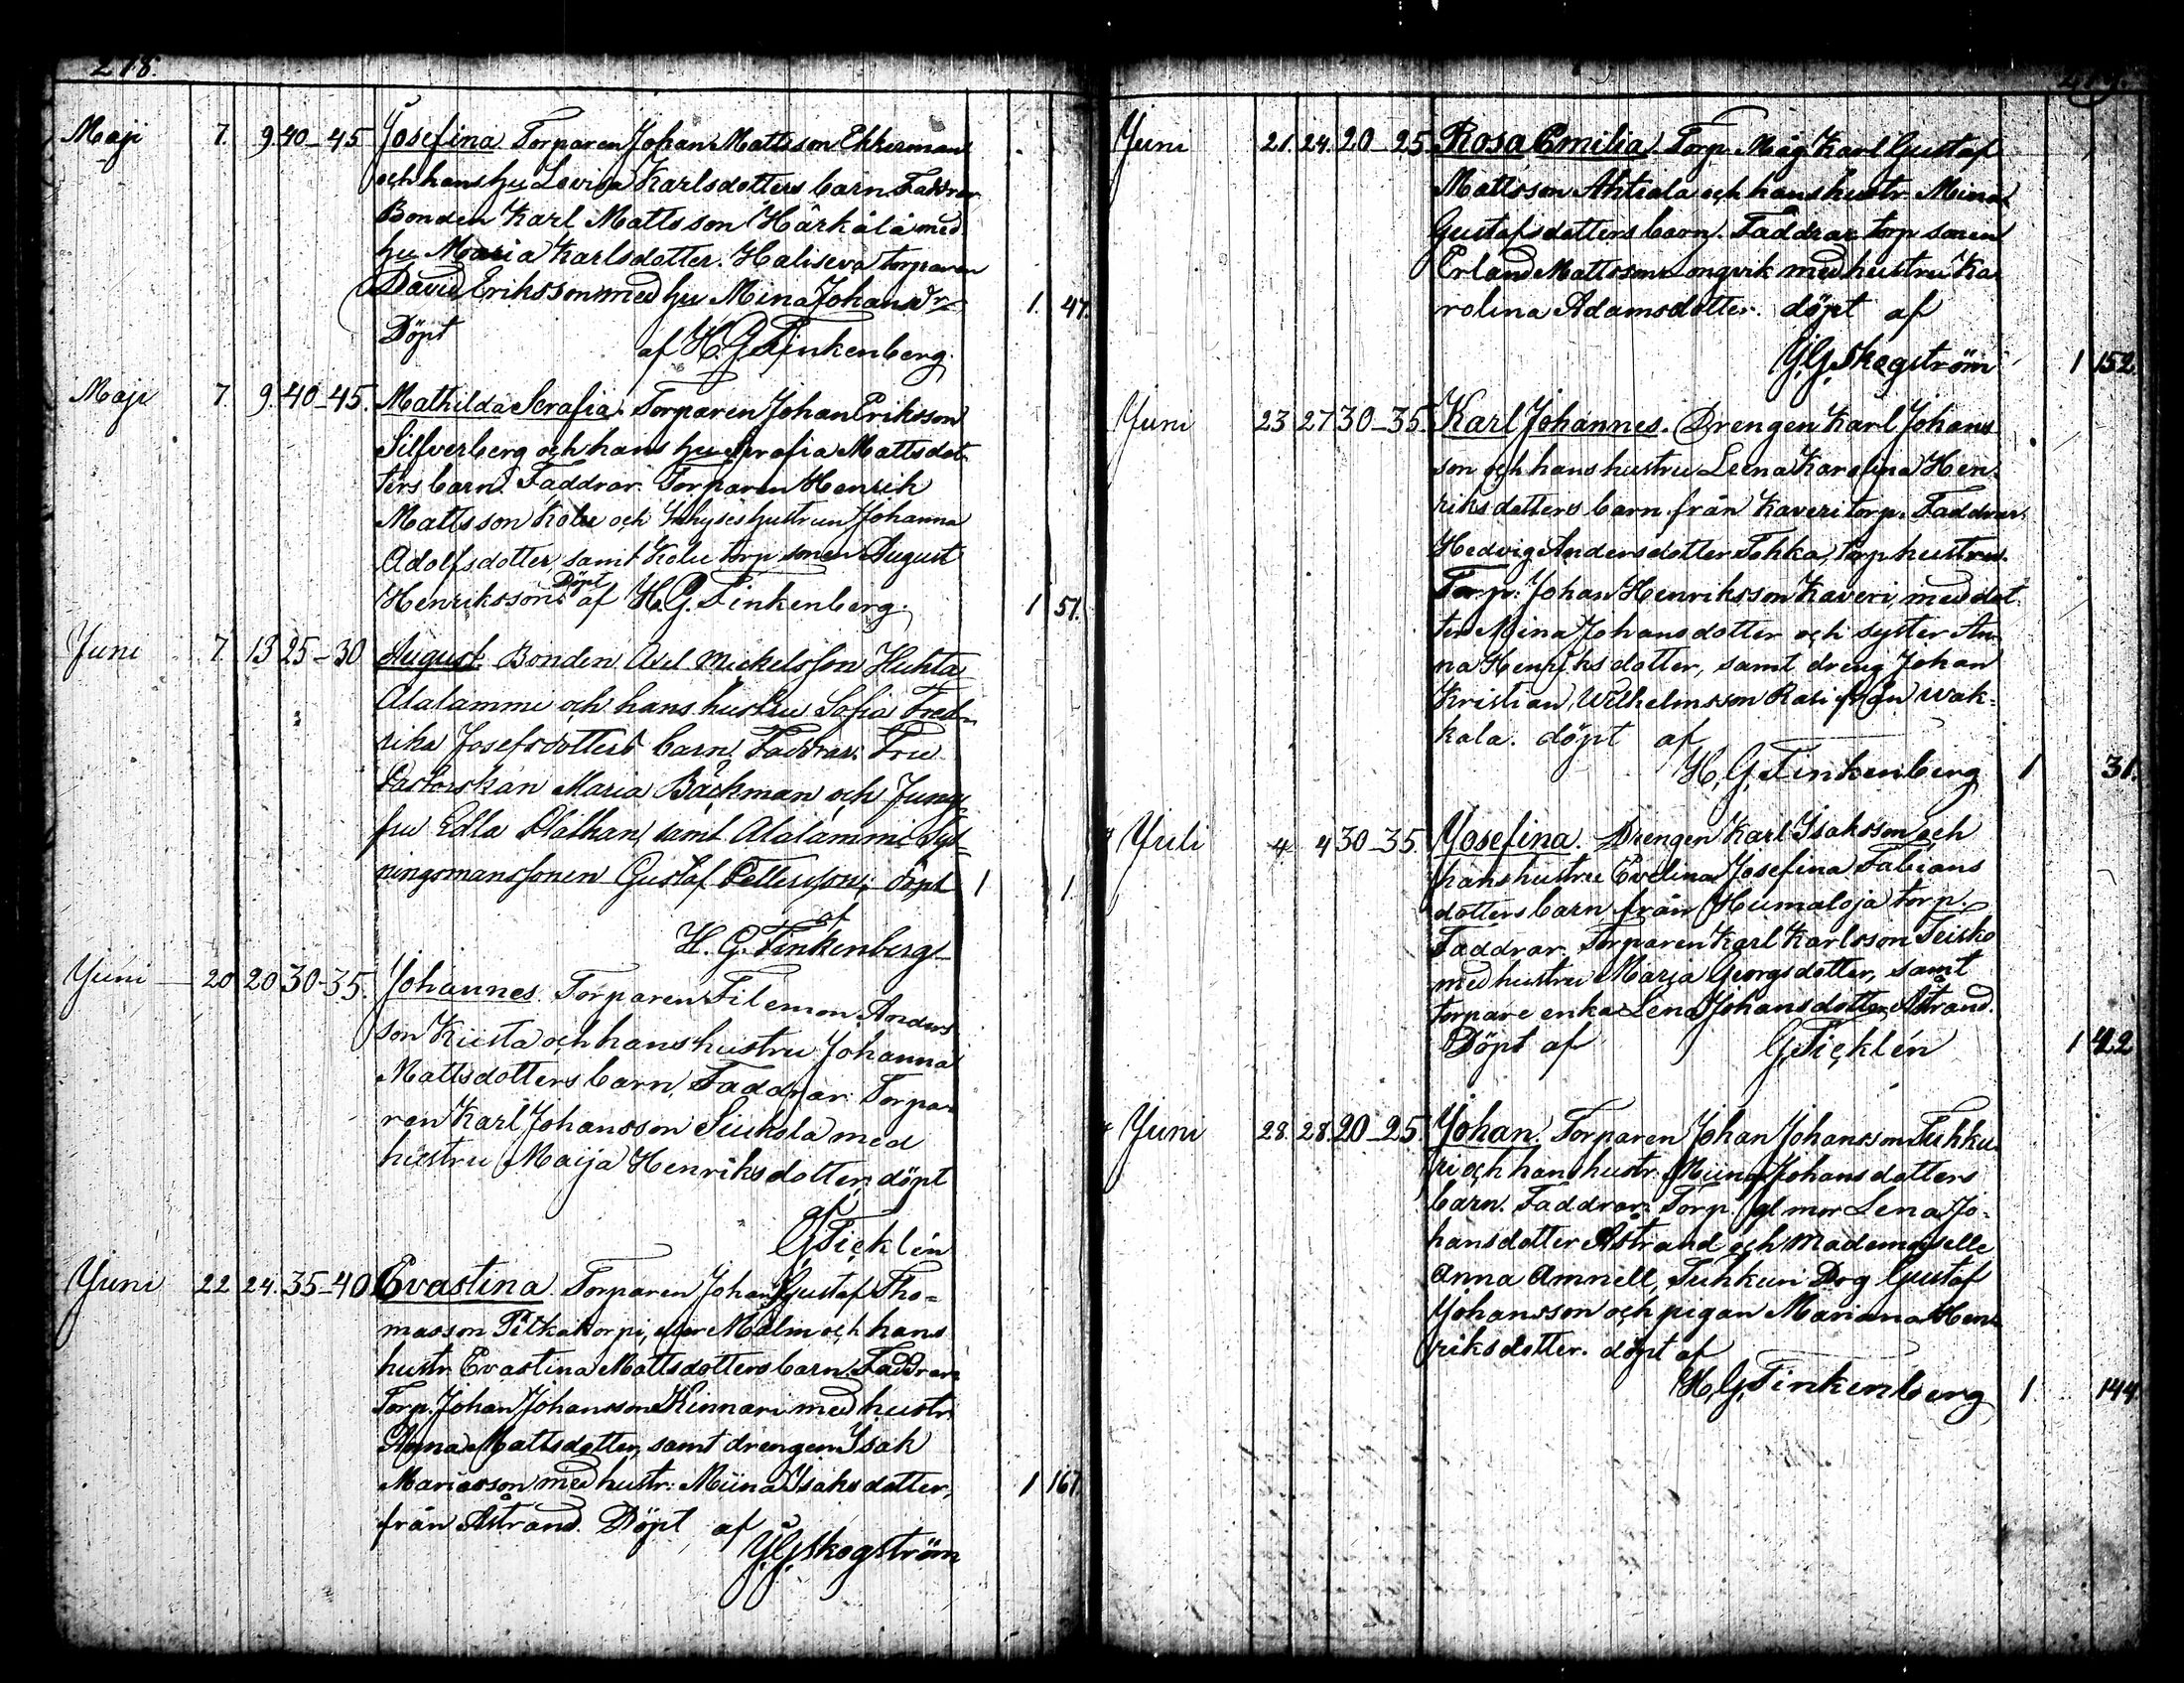 218.
Maji 7. 9. 40-45. Josefina. Torparen Johan Mattsson Ekkerman
och hans hu Lovisa Karlsdotters barn. Faddrar
Bonden Karl Mattsson Härkälä med
hu Maria Karlsdotter. Haliseva torparen
David Eriksson med hu Mina Johansdr 1. 47.
Döpt af H. G. Finkenberg.
Maji 7. 9. 40-45. Mathilda Serafia. Torparen Johan Eriksson
Silfverberg och hans hu Serafia Mattsdot
ters barn. Faddrar. Torparen Henrik
Mattsson Kolu och Inhyseshustrun Johanna
Adolfsdotter, samt Kolu torp sonen August
Henriksson. Döpt af H. G. Finkenberg. 1 51.
Juni 7. 13 25-30 August. Bonden Axel Mickelsson Huhta
Alalammi och hans hustru Sofia Fred-
rika Josefsdotters barn. Faddrar: Fru
Pastorskan Maria Bäckman och Jung
fru Edla Plathan, samt Alalammi Syt-
ningsmanssonen Gustaf Pettersson; Döpt 1 1.
af
H. G. Finkenberg
Juni 20 20 30-35. Johannes. Torparen Filemon Anders
son Kiista och hans hustru Johanna
Mattsdotters barn, Faddrar: Torpa-
ren Karl Johansson Siukola med
hustru Maija Henriksdotter; döpt
af
G. Ticklén
Juni 22 24. 35-40 Evastina. Torparen Johan Gustaf Tho-
masson Pitkäkorpi, eller Malm och hans
hustr. Evastina Mattsdotters barn. Faddrar
Torp. Johan Johansson Kinnari med hustr.
Anna Mattsdotter, samt drengen Isak
Mariasson med hustr: Miina Isaksdotter, 1 167.
från Åstrand. Döpt af
J. G. Skogström
219.
Juni 21. 24. 20-25. Rosa Emilia. Torp. Måg Karl Gustaf
Mattsson Ahtiala och hans hustr. Mina
Gustafsdotters barn. Faddrar torp sonen
Erland Mattsson Longvik med hustru Ka
rolina Adamsdotter. döpt af
J. G. Skogström 1 152.
Juni 23. 27 30-35. Karl Johannes. Drengen Karl Johans
son och hans hustru Leena Karolina Hen
riksdotters barn från Kaveri torp. Faddrar.
Hedvig Andersdotter Tohka, torp hustru.
Torp: Johan Henriksson Kaveri, med dot
ter Mina Johansdotter och syster An
na Henriksdotter, samt dreng Johan
Kristian Wilhelmsson Rasi från Wak-
kala. döpt af
H. G. Finkenberg 1 31.
Juli 4. 4 30-35. Josefina. Drengen Karl Isaksson och
hans hustru Evelina Josefina Fabians
dotters barn från Humaloja torp.
Faddrar. Torparen Karl Karlsson Teisko
med hustru Marja Georgsdotter, samt
torpare enka Lena Johansdotter Åstrand.
Döpt af G. Ticklén 1 42
Juni 28. 28. 20-25. Johan. Torparen Johan Johansson Tuhku
ri och hans hustr. Miina Johansdotters
barn. Faddrar. Torp. gl mor Lena Jo-
hansdotter Åstrand och Mademoiselle
Anna Amnell, Tuhkuri Drg Gustaf
Johansson och pigan Mariana Hen
riksdotter. döpt af
H. G. Finkenberg 1. 144.